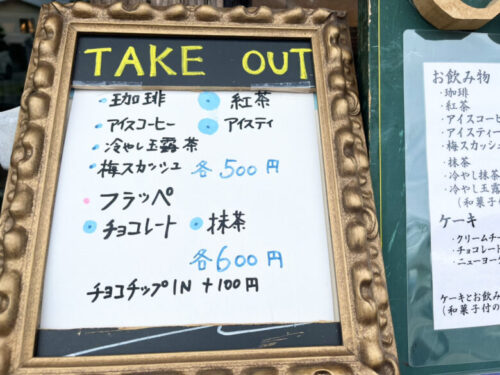 TAKE OUT
・珈琲 ・紅茶
・アイスコーヒー ・アイスティ
・冷やし玉露茶
・梅スカッシュ 各500円
・フラッペ
・チョコレート ・抹茶
各600円
チョコチップIN +100円
お飲み物
・珈琲
・紅茶
・アイスコーヒ
・アイスティー
・梅スカッシュ
・抹茶
・冷やし抹茶
・冷やし玉露
(和菓子付
ケーキ
・クリームチー
・チョコレート
・ニューヨーク
ケーキとお飲み
(和菓子付の